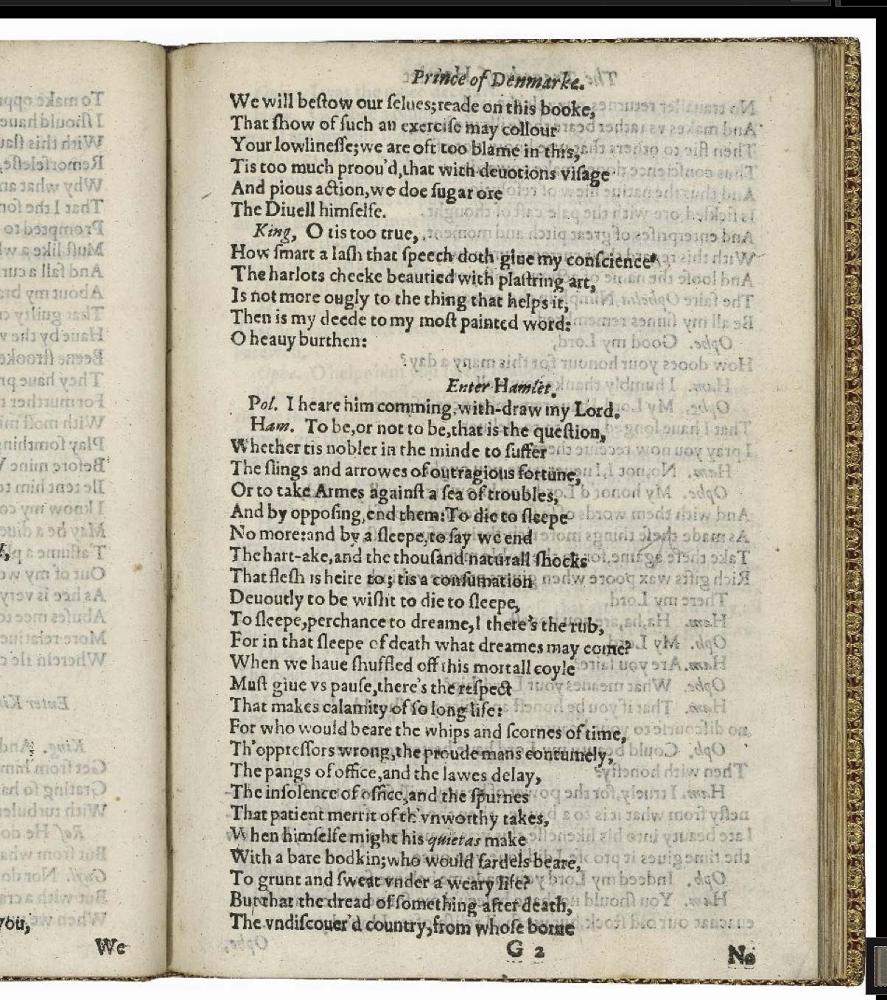 Prince of Denmarke.
We will beſtow our ſelues;reade on this booke,
That ſhow of ſuch an exerciſe may collour
Your lowlineſſe;we are oft too blame in this,
Tis too much proou'd,that with deuotions viſage
And pious action,we doe ſugar ore
The Diuell himſelfe.
King, O tis too true,
How ſmart a laſh that ſpeech doth giue my conſcience
The harlots cheeke beautied with plaſtring art,
Is not more ougly to the thing that helps it,
Then is my deede to my moſt painted word:
O heauy burthen:
Enter Hamlet.
Pol. I heare him comming,with-draw my Lord,
Ham. To be,or not to be,that is the queſtion,
Whether tis nobler in the minde to ſuffer
The ſlings and arrowes of outragious fortune,
Or to take Armes againſt a ſea of troubles,
And by oppoſing,end them:To die to ſleepe
No more:and by a ſleepe,to ſay we end
The hart-ake,and the thouſand naturall ſhocks
That fleſh is heire to; tis a conſumation
Deuoutly to be wiſht to die to ſleepe,
To ſleepe,perchance to dreame,I there's the rub,
For in that ſleepe of death what dreames may come?
When we haue ſhuffled off this mortall coyle
Muſt giue vs pauſe,there's the reſpect
That makes calamity of ſo long life:
For who would beare the whips and ſcornes of time,
Th'oppreſſors wrong,the proude mans contumely,
The pangs of office,and the lawes delay,
The inſolence of office,and the ſpurnes
That patient merrit of th'vnworthy takes,
When himſelfe might his quietas make
With a bare bodkin;who would fardels beare,
To grunt and ſweat vnder a weary life?
But that the dread of ſomething after death,
The vndiſcouer'd country,from whoſe borne
G 2
No
you,
We